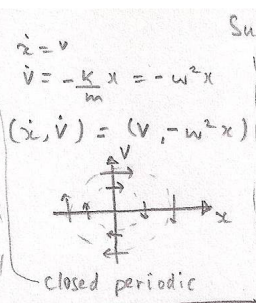 Su
ẋ = v
v̇ = -k/m x = -ω²x
(ẋ, v̇) = (v, -ω²x)
v
x
closed periodic